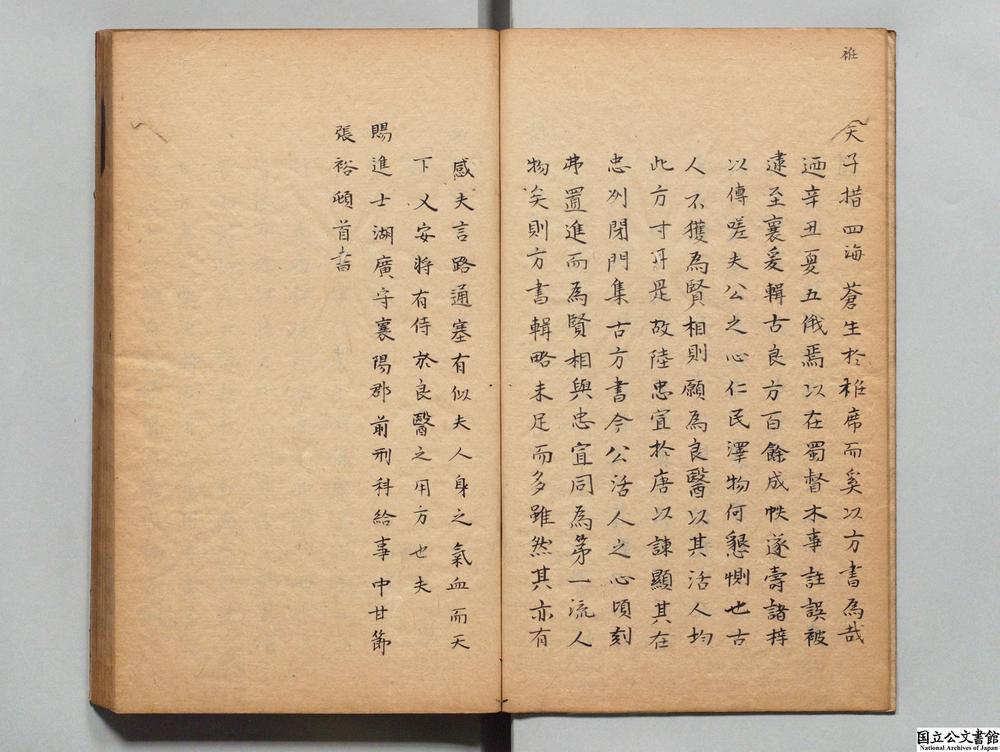 袵
天子措四海蒼生於袵席而奚以方書為哉
迺辛丑夏五俄焉以在蜀督木事詿誤被
逮至襄爰輯古良方百餘成帙遂壽諸梓
以傳嗟夫公之心仁民澤物何懇惻也古
人不獲為賢相則願為良醫以其活人均
此方寸耳是故陸忠宣於唐以諫顯其在
忠州閉門集古方書今公活人之心頃刻
弗置進而為賢相與忠宣同為第一流人
物矣則方書輯略未足而多雖然其亦有
感夫言路通塞有似夫人身之氣血而天
下乂安將有侍於良醫之用方也夫
賜進士湖廣守襄陽郡前刑科給事中甘節
張裕頓首書
国立公文書館
National Archives of Japan